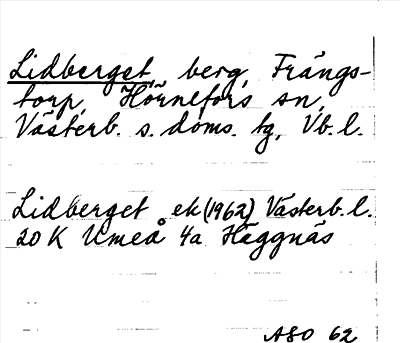 Lidberget, berg, Frängs-
torp, Hörnefors sn,
Västerb. s. doms. tg, Vb. l.
Lidberget ek (1962) Västerb. l.
20 K Umeå 4a Häggnäs
ASO 62